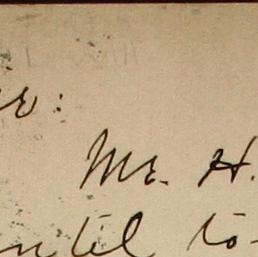 Mr. H.
until to-